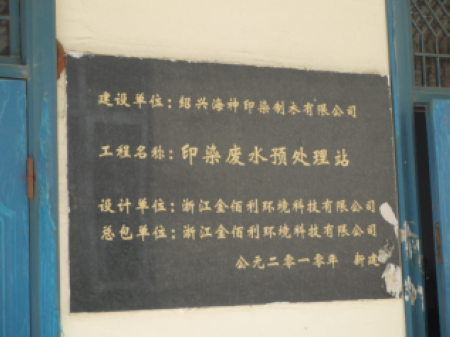 建设单位:绍兴海神印染制衣有限公司
工程名称:印染废水预处理站
设计单位:浙江金佰利环境科技有限公司
总包单位:浙江金佰利环境科技有限公司
公元二零一零年 新建